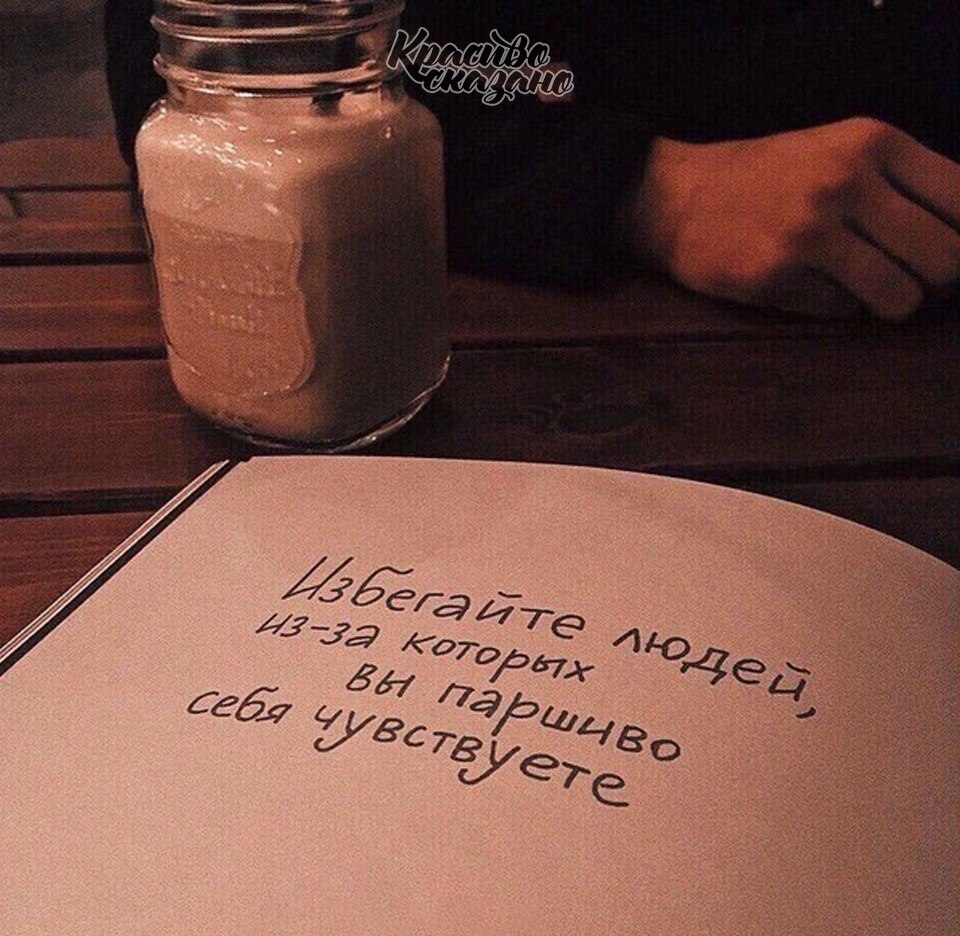 Красиво
сказано
Избегайте людей,
из-за которых
вы паршиво
себя чувствуете